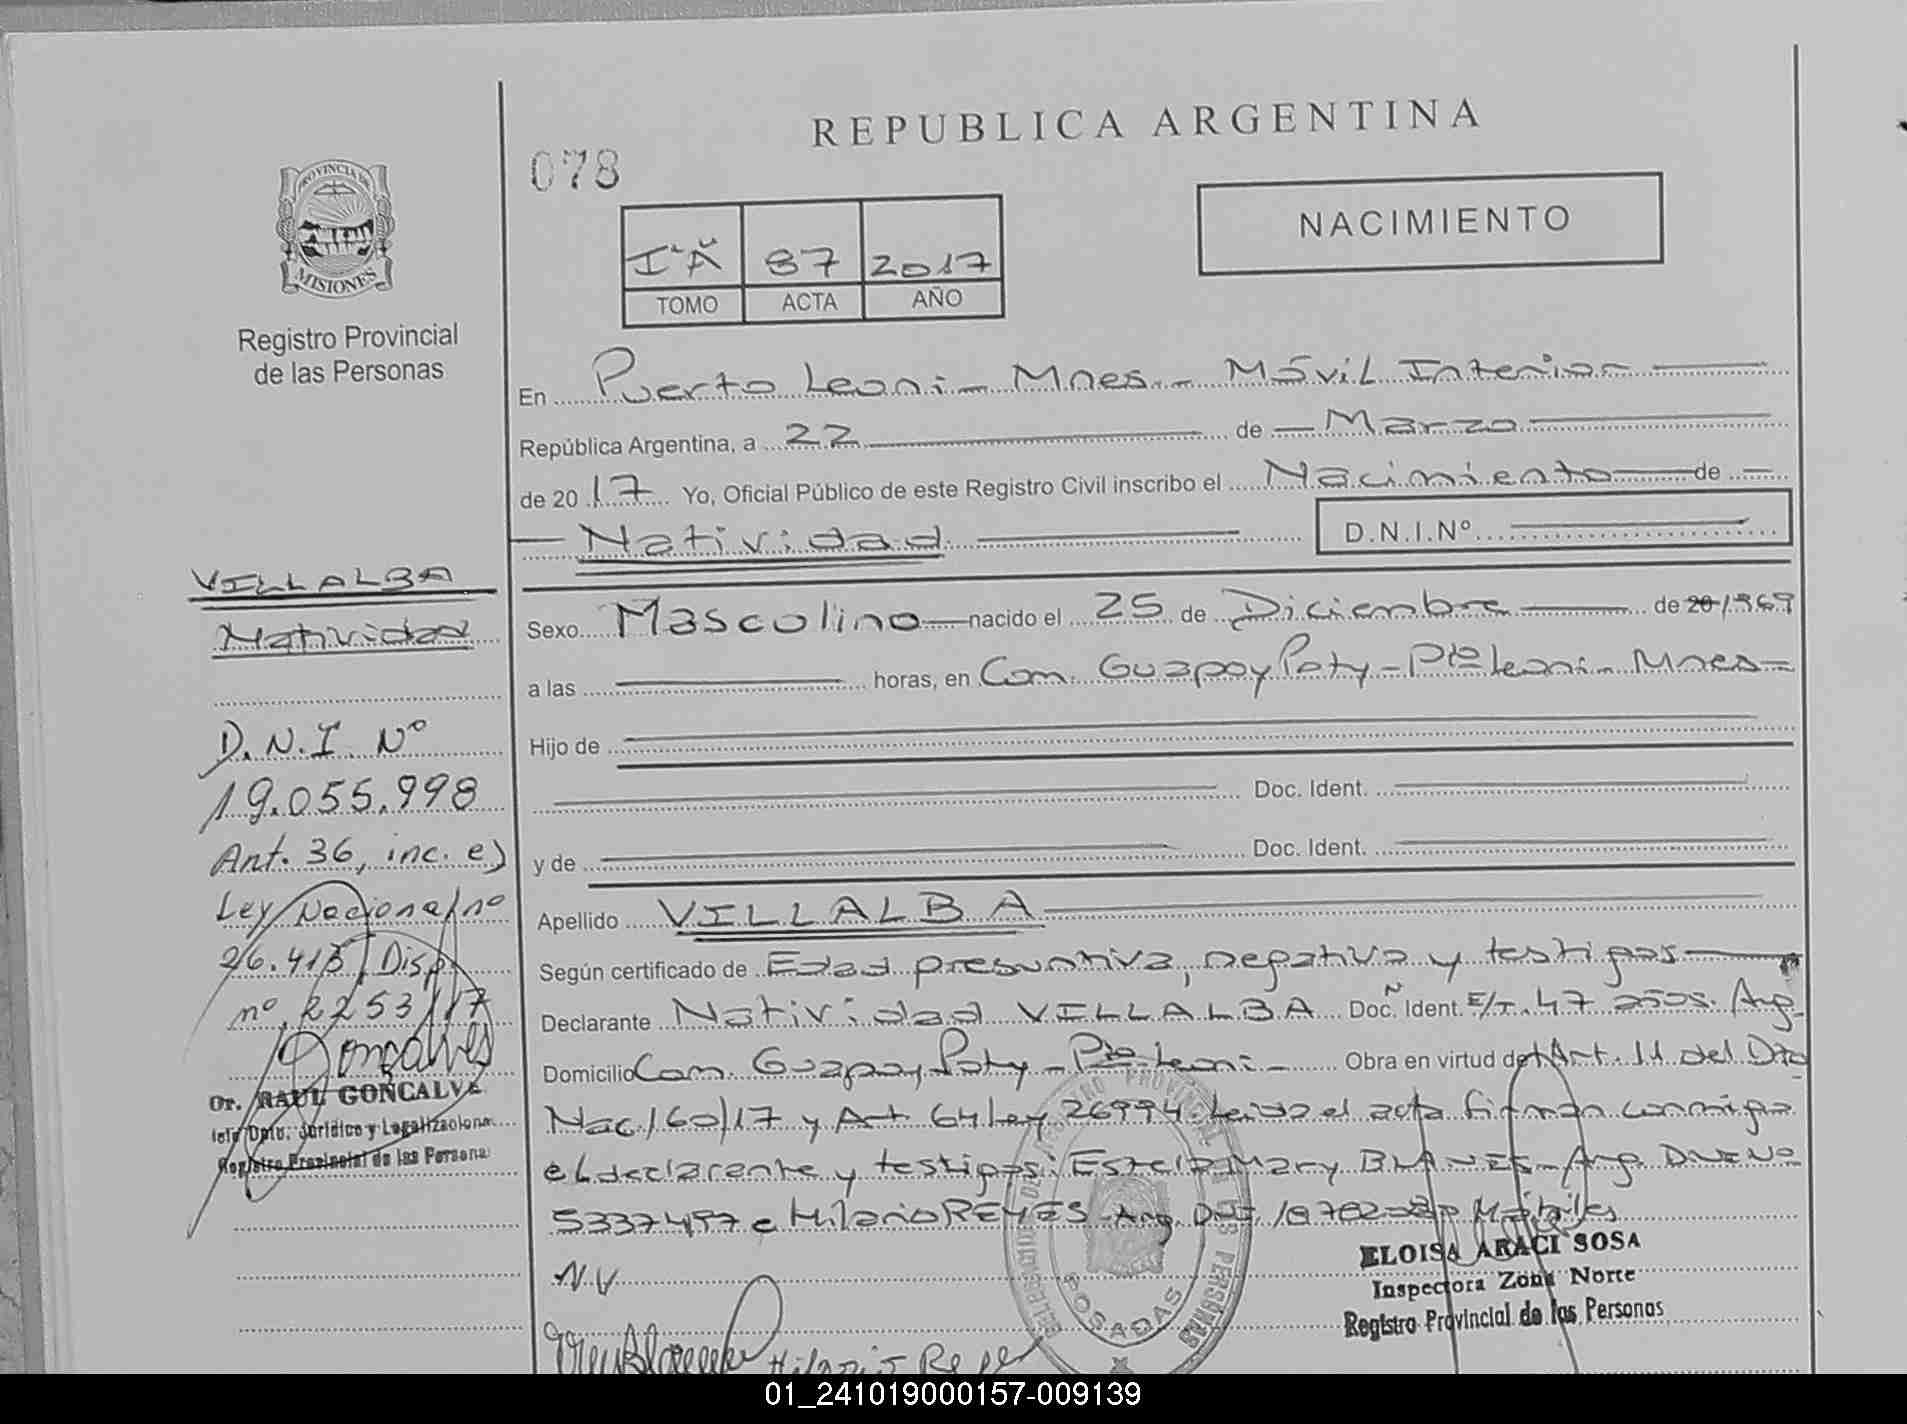 REPUBLICA ARGENTINA
078
NACIMIENTO
PROVINCIA DE
MISIONES
Registro Provincial
de las Personas
87 2017
TOMO ACTA AÑO
En Puerto Leoni - Mnes. - Móvil Interior
República Argentina, a 22 de Marzo
de 2017 Yo, Oficial Público de este Registro Civil inscribo el Nacimiento de
Natividad D.N.I.Nº
Sexo Masculino nacido el 25 de Diciembre de 20 1969
a las horas, en Com. Guapoy Poty - Pto Leoni - Mnes
Hijo de
Doc. Ident.
y de Doc. Ident.
Apellido VILLALBA
Según certificado de Edad presuntiva, negativa y testigos
Declarante Natividad VILLALBA Doc. Ident. E/T. Arg.
Domicilio Com. Guapoy Poty - Pto Leoni - Obra en virtud del Art. 11 del Dto
Nac 160/17 y Art 64 Ley 26994. Leida el acta firman conmigo
el declarante y testigos: Estela Mary Arg. DNI Nº
5337497 e Hilario REYES Arg. DNI
NV
VILLALBA
Natividad
D.N.I. Nº
19.055.998
Art. 36, inc. e)
Ley Nacional nº
26.413, Disp.
nº 2253/17
Gonçalves
Dr. RAUL GONCALVE
Jefe Dpto. Jurídico y Legalizacione
Registro Provincial de las Persona
POSADAS
ELOISA ARACI SOSA
Inspectora Zona Norte
Registro Provincial de las Personas
Hilario Reye
01_241019000157-009139